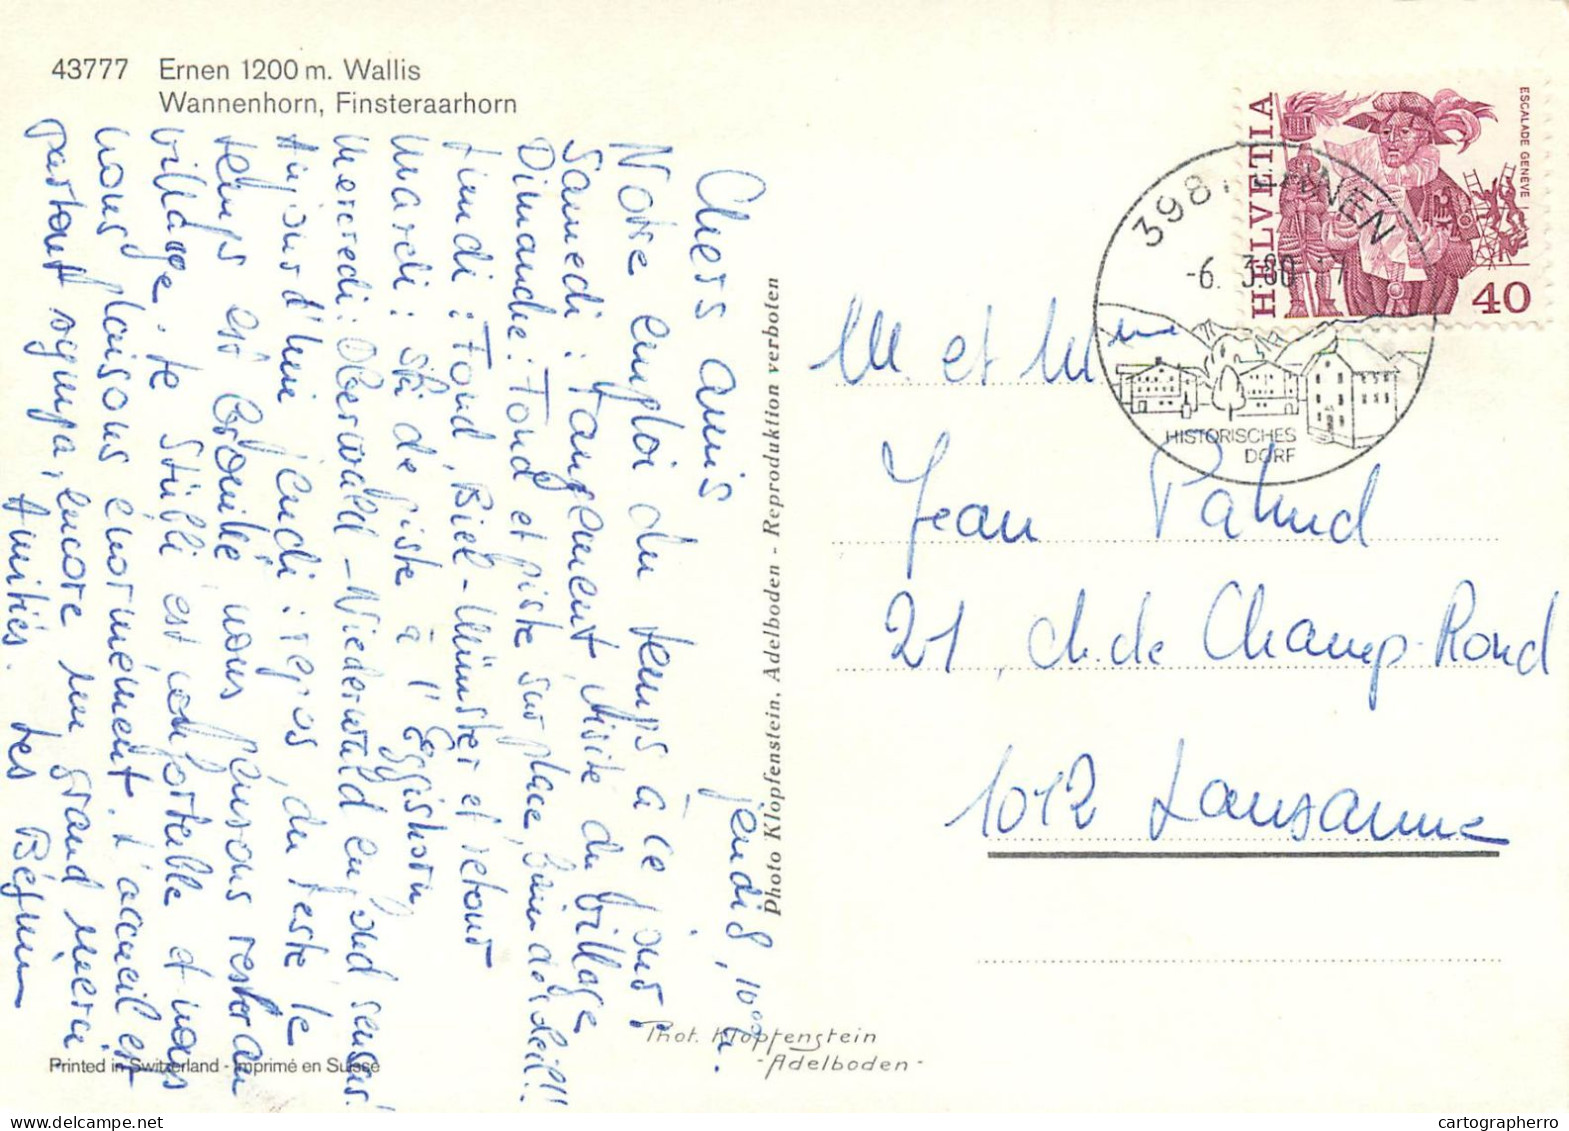 43777 Ernen 1200 m. Wallis
Wannenhorn, Finsteraarhorn
jeudi 8, 10.00 h.
Chers amis
Notre emploi du temps à ce jour :
Samedi : rangement, visite du village
Dimanche : Fond et piste sur place, bain de soleil!!
Lundi : Fond, Biel - Münster et retour
Mardi : ski de piste à l'Eggishorn
Mercredi : Oberwald - Niederwald en fond sensas!
Aujourd'hui jeudi : repos, du reste le
temps est brouillé, nous pensons rester au
village. Le Stübli est confortable et nous
nous plaisons énormément. L'accueil est
partout sympa, encore un grand merci
Amitiés. Les Béguin
Printed in Switzerland - Imprimé en Suisse
Photo Klopfenstein, Adelboden - Reproduktion verboten
Phot. Klopfenstein
- Adelboden -
HELVETIA
ESCALADE GENÈVE
40
ERNEN
-6. 3.80 17
HISTORISCHES
DORF
M. et Mme
Jean Pahud
21, ch. de Champ-Rond
1012 Lausanne
cartographerro